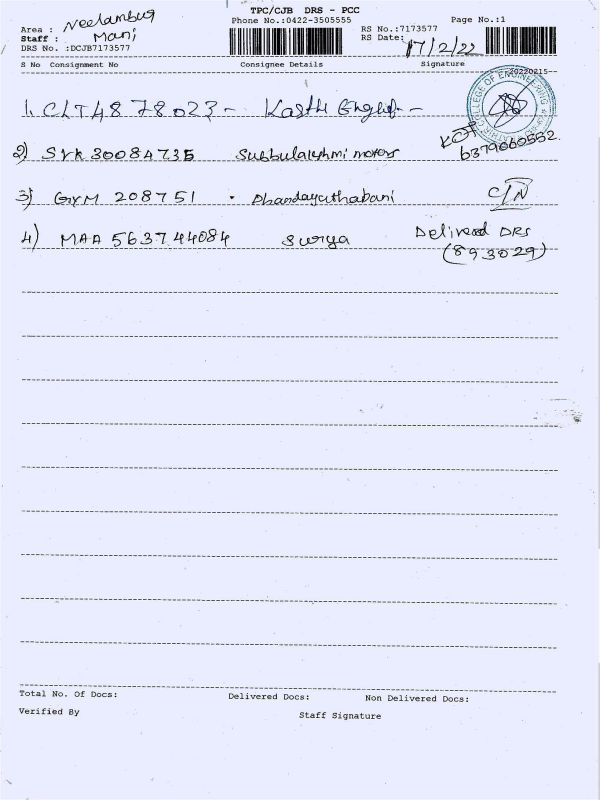 TPC/CJB DRS - PCC
Area : Neelambur
Phone No.:0422-3505555
RS No.:7173577
Page No.:1
Staff : Mani
RS Date: 17/2/22
DRS No. :DCJB7173577
S No Consignment No Consignee Details Signature
--20220215--
COLLEGE OF ENGINEERING
1. CLT4878023 -
6379060552.
2) SVK30084735 Subbulakshmi motors
3) GYM 208751 . Dhandayuthabani C/N
4) MAA 563744084 Surya Delivered DRS
(893029)
Total No. Of Docs: Delivered Docs: Non Delivered Docs:
Verified By Staff Signature